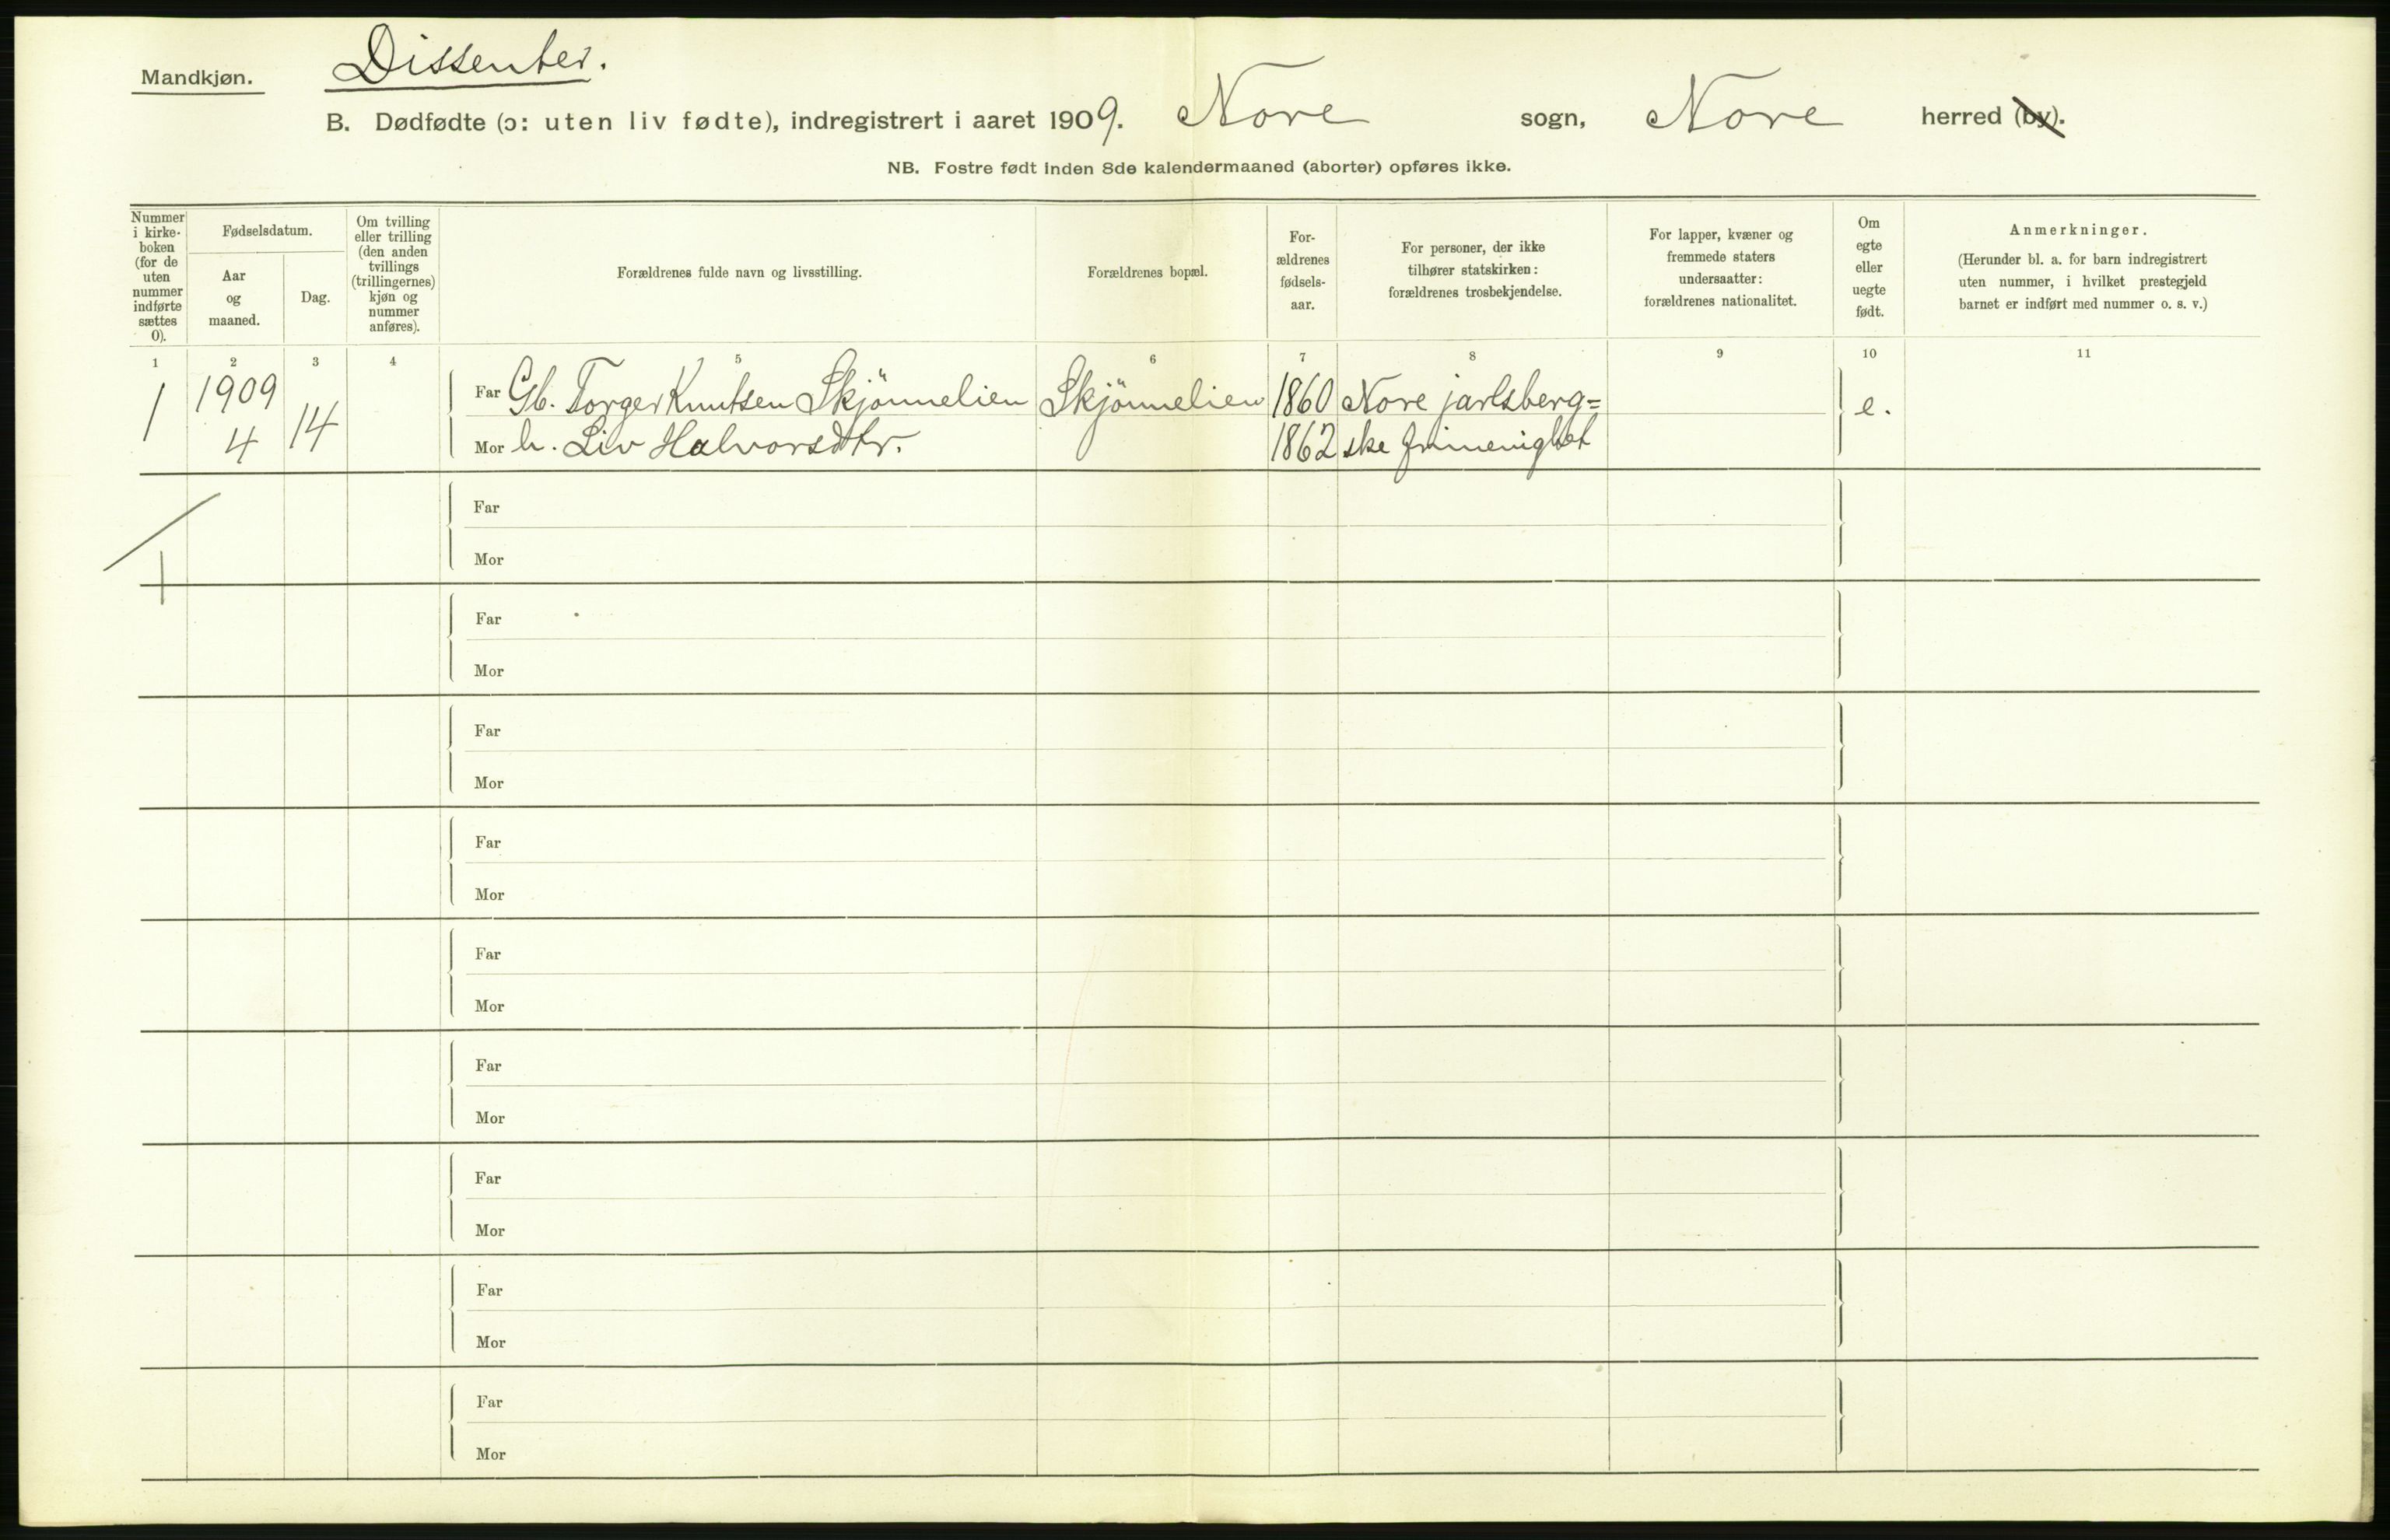 Mandkjøn.
Dissenter.
B. Dødfødte (ɔ: uten liv fødte), indregistrert i aaret 1909. Nore sogn, Nore herred (by).
NB. Fostre født inden 8de kalendermaaned (aborter) opføres ikke.
Nummer
i kirke-
boken
(for de
uten
nummer
indførte
sættes
0).
Fødselsdatum.
Aar
og
maaned.
Dag.
Om tvilling
eller trilling
(den anden
tvillings
(trillingernes)
kjøn og
nummer
anføres).
Forældrenes fulde navn og livsstilling.
Forældrenes bopæl.
For-
ældrenes
fødsels-
aar.
For personer, der ikke
tilhører statskirken:
forældrenes trosbekjendelse.
For lapper, kvæner og
fremmede staters
undersaatter:
forældrenes nationalitet.
Om
egte
eller
uegte
født.
Anmerkninger.
(Herunder bl. a. for barn indregistrert
uten nummer, i hvilket prestegjeld
barnet er indført med nummer o. s. v.)
1 2 3 4 5 6 7 8 9 10 11
1 1909 14 Far Gb. Torger Knutsen Skjönnelien Skjönnelien 1860 Nore jarlsberg= e.
4 Mor h. Liv Halvorsdtr. 1862 ske frimenighet
Far
Mor
1
Far
Mor
Far
Mor
Far
Mor
Far
Mor
Far
Mor
Far
Mor
Far
Mor
Far
Mor